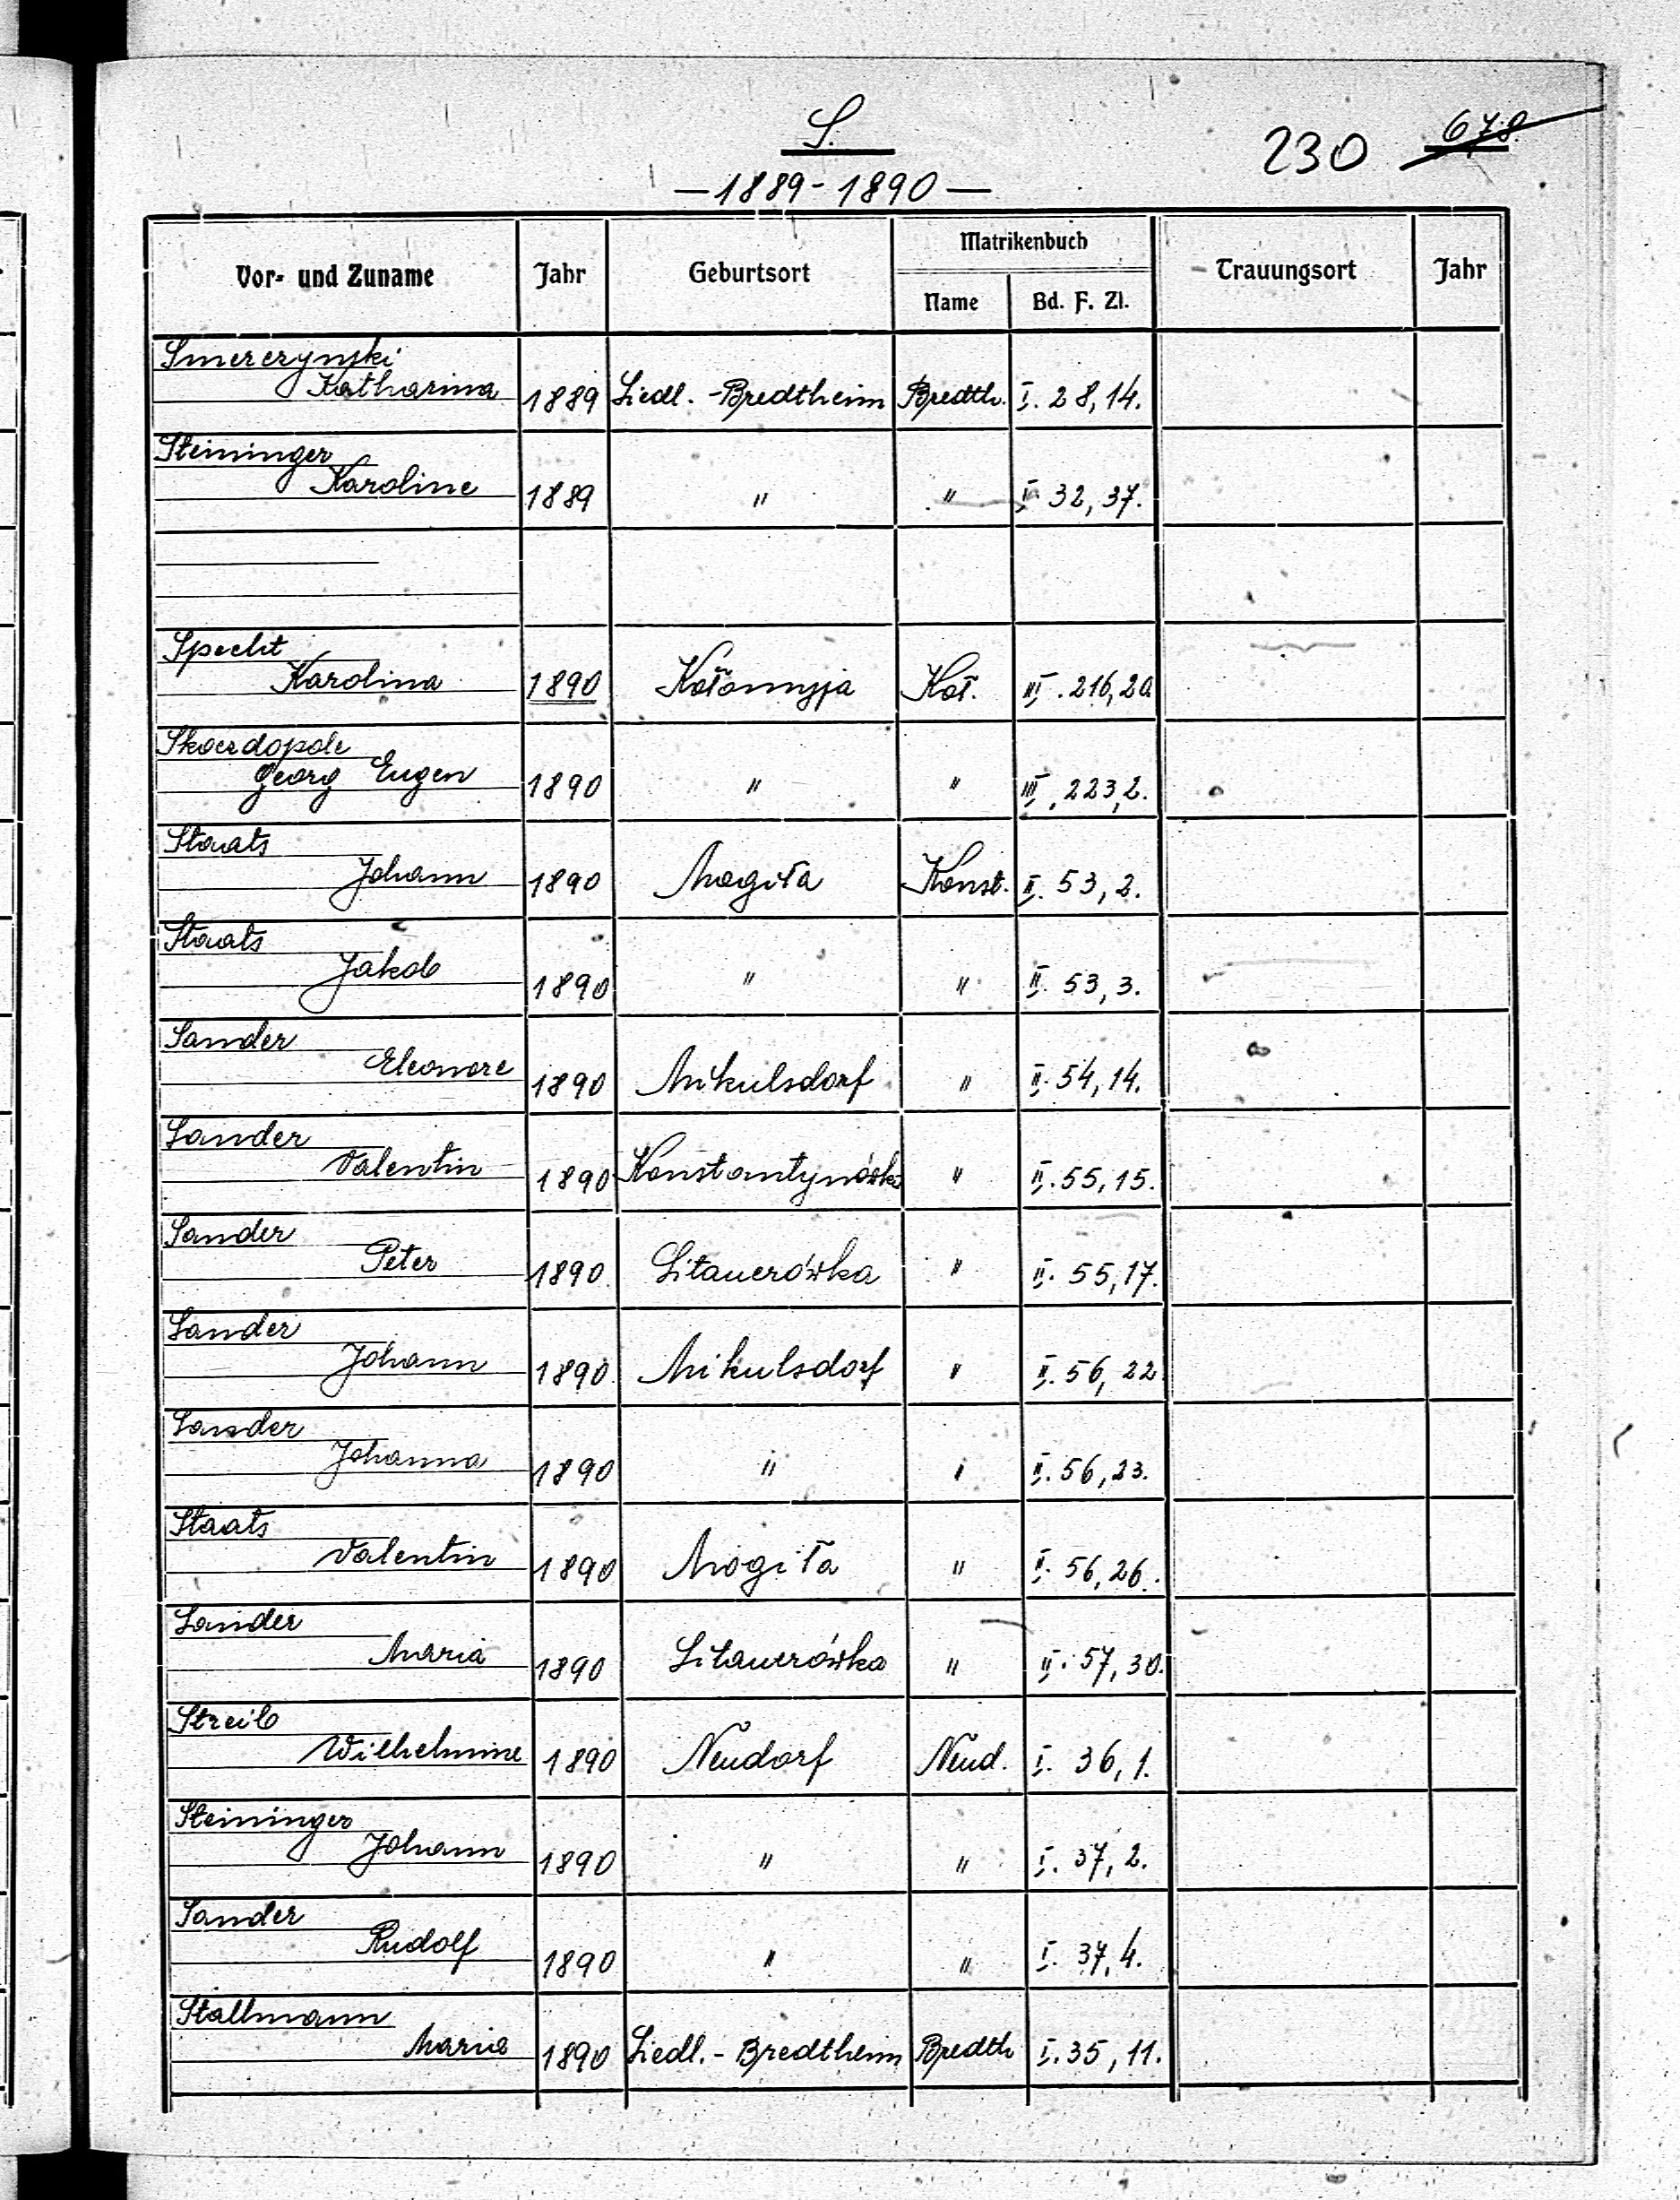 S.
230 678.
—1889-1890—
Vor- und Zuname Jahr Geburtsort Matrikenbuch Trauungsort Jahr
Name Bd. F. Zl.
Smererynski
Katharina 1889 Siedl.-Bredtheim Bredth. I. 28, 14.
Steininger
Karoline 1889 " " I. 32, 37.
Specht
Karolina 1890 Kołomyja Koł. III. 216, 20
Skoerdopole
Georg Eugen 1890 " " III, 223, 2.
Staats
Johann 1890 Mogiła Konst. II. 53, 2.
Staats
Jakob 1890 " " II. 53, 3.
Sander
Eleonore 1890 Mikulsdorf " II. 54, 14.
Sander
Valentin 1890 Konstantynówka " II. 55, 15.
Sander
Peter 1890 Sitauerówka " II. 55, 17.
Sander
Johann 1890 Mikulsdorf " II. 56, 22
Sander
Johanna 1890 " " II. 56, 23.
Staats
Valentin 1890 Mogiła " II. 56, 26.
Sander
Maria 1890 Sitauerówka " II. 57, 30.
Streib
Wilhelmine 1890 Neudorf Neud. I. 36, 1.
Steininger
Johann 1890 " " I. 37, 2.
Sander
Rudolf 1890 " " I. 37, 4.
Stallmann
Marie 1890 Siedl.-Bredtheim Bredth I. 35, 11.